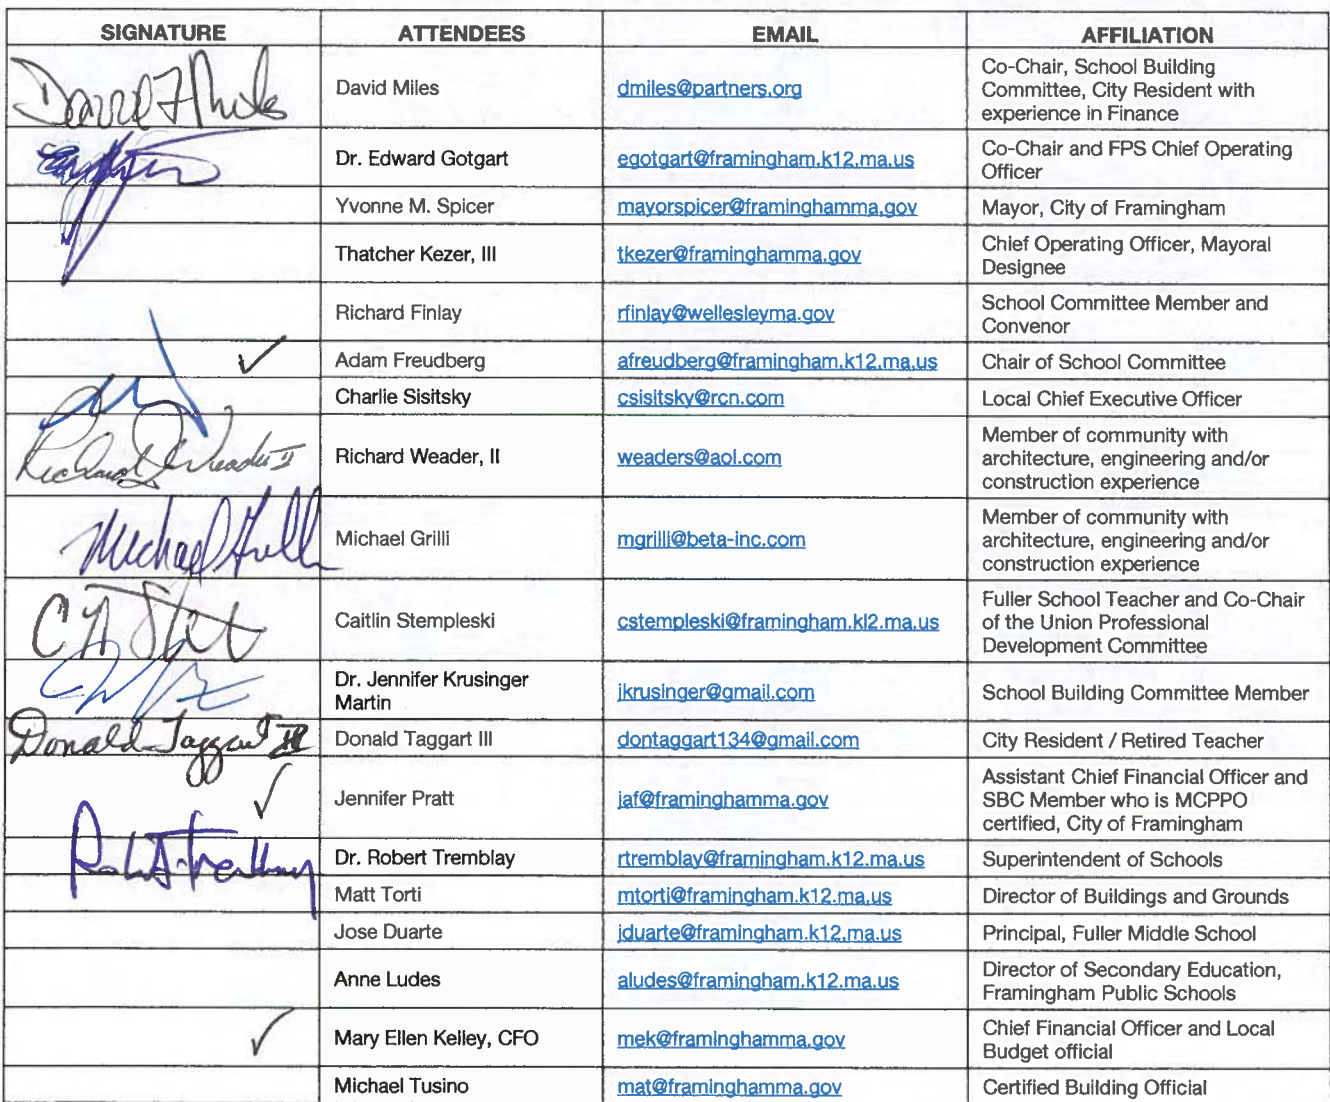 SIGNATURE ATTENDEES EMAIL AFFILIATION
David F Miles David Miles dmiles@partners.org Co-Chair, School Building
Committee, City Resident with
experience in Finance
Dr. Edward Gotgart egotgart@framingham.k12.ma.us Co-Chair and FPS Chief Operating
Officer
Yvonne M. Spicer mayorspicer@framinghamma.gov Mayor, City of Framingham
Thatcher Kezer, III tkezer@framinghamma.gov Chief Operating Officer, Mayoral
Designee
Richard Finlay rfinlay@wellesleyma.gov School Committee Member and
Convenor
✓ Adam Freudberg afreudberg@framingham.k12.ma.us Chair of School Committee
Charlie Sisitsky csisitsky@rcn.com Local Chief Executive Officer
Richard J Weader II Richard Weader, II weaders@aol.com Member of community with
architecture, engineering and/or
construction experience
Michael Grilli Michael Grilli mgrilli@beta-inc.com Member of community with
architecture, engineering and/or
construction experience
Caitlin Stempleski cstempleski@framingham.kl2.ma.us Fuller School Teacher and Co-Chair
of the Union Professional
Development Committee
Dr. Jennifer Krusinger
Martin jkrusinger@gmail.com School Building Committee Member
Donald Taggart III Donald Taggart III dontaggart134@gmail.com City Resident / Retired Teacher
✓ Jennifer Pratt jaf@framinghamma.gov Assistant Chief Financial Officer and
SBC Member who is MCPPO
certified, City of Framingham
Dr. Robert Tremblay rtremblay@framingham.k12.ma.us Superintendent of Schools
Matt Torti mtorti@framingham.k12.ma.us Director of Buildings and Grounds
Jose Duarte jduarte@framingham.k12.ma.us Principal, Fuller Middle School
Anne Ludes aludes@framingham.k12.ma.us Director of Secondary Education,
Framingham Public Schools
✓ Mary Ellen Kelley, CFO mek@framinghamma.gov Chief Financial Officer and Local
Budget official
Michael Tusino mat@framinghamma.gov Certified Building Official